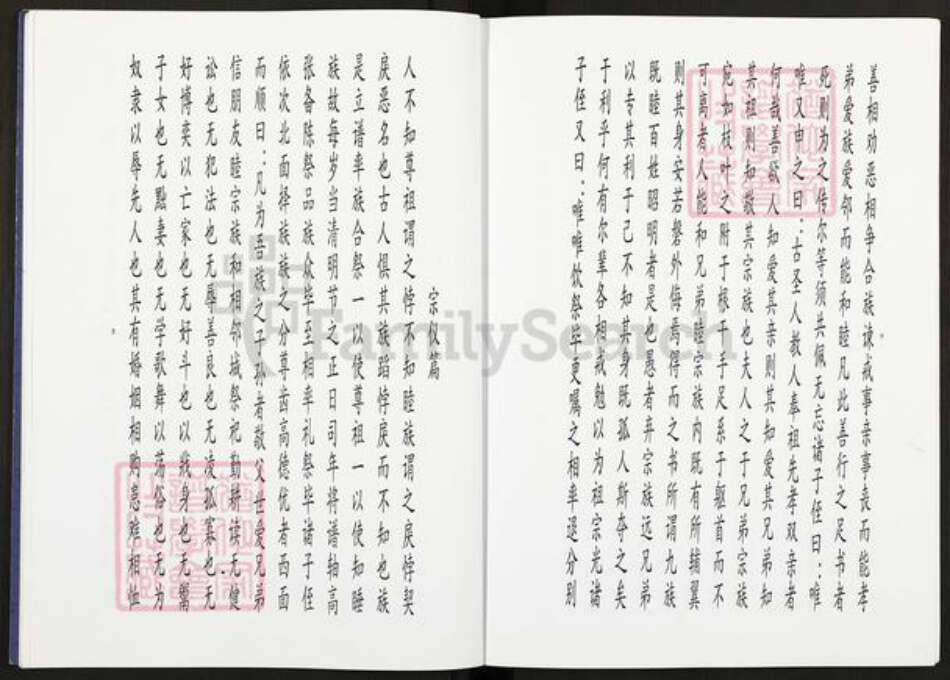 善相劝恶相争合族谏戒事亲事丧而能孝
弟爱族爱邻而能和睦凡此善行之足书者
死则为之传尔等须共佩无忘诸子侄曰：唯
唯又申之曰：古圣人教人奉祖先孝双亲者
何哉善欲人知爱其亲则其知爱其兄弟知
其祖则知敬其宗族也夫人之于兄弟宗族
宛如枝叶之附于根于手足系于躯首而不
可离者人能和兄弟睦宗族内既有所辅翼
则其身安若磐外侮焉得而之书所谓九族
既睦百姓昭明者是也愚者弃宗族远兄弟
以专其利于己不知其身既孤人斯夺之矣
于利乎何有尔辈各相戒勉以为祖宗光诸
子侄又曰：唯唯饮祭毕更嘱之相率退分别
宗仪篇
人不知尊祖谓之悖不知睦族谓之戾悖契
戾恶名也古人惧其族蹈悖戾而不知也族
是立谱率族合祭一以使尊祖一以使知睡
族故每岁当清明节之正日司年将谱轴高
张备陈祭品族众毕至相率礼祭毕诸子侄
依次北面择族族之分尊齿高德优者西面
而顺曰：凡为吾族之子孙者敬父世爱兄弟
信朋友睦宗族和相邻城祭祀勤耕读无健
讼也无犯法也无辱善良也无凌孤寡也无
好博奕以亡家也无好斗也以戕身也无鬻
子女也无黜妻也无学歌舞以荡俗也无为
奴隶以辱先人也其有婚姻相购患难相恤
FamilySearch